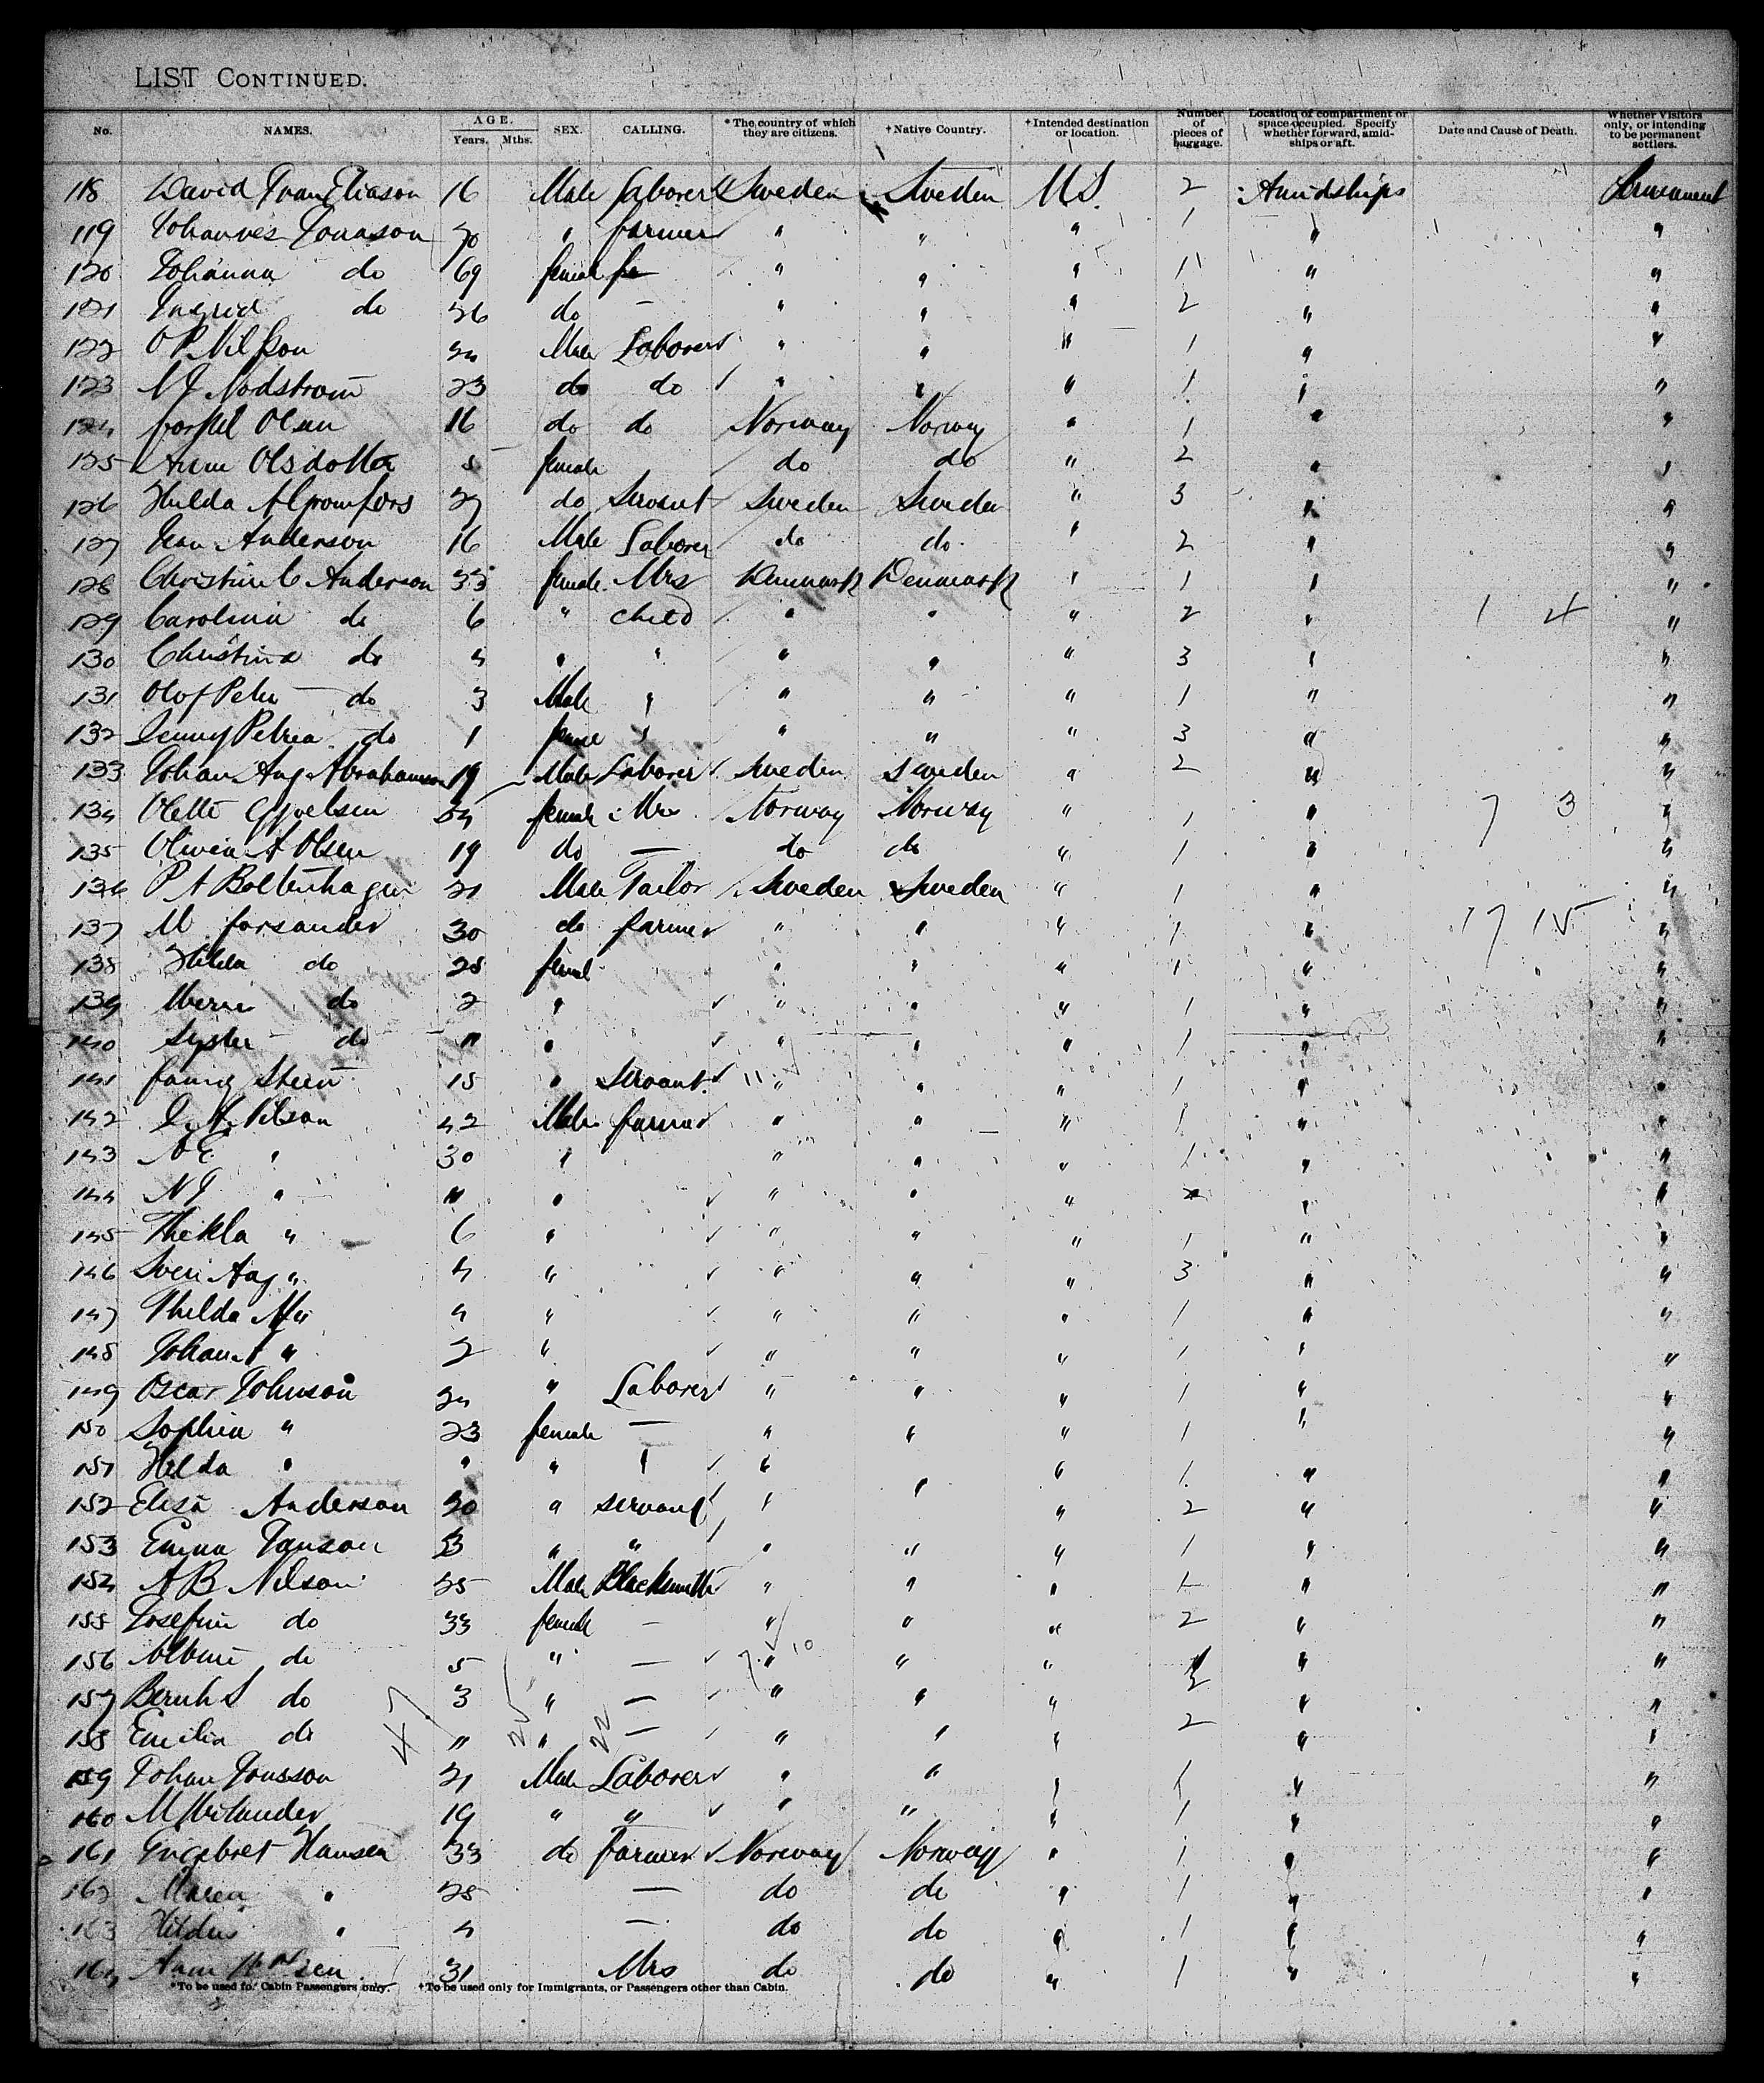 LIST CONTINUED.
No. NAMES. AGE. Years. Mths. SEX. CALLING. *The country of which they are citizens. †Native Country. †Intended destination or location. Number of pieces of baggage. Location of compartment or space occupied. Specify whether forward, amidships or aft. Date and Cause of Death. Whether Visitors only, or intending to be permanent settlers.
118 David Ivan Eliason 16 Male Laborer Sweden Sweden U.S. 2 Amidships Permanent
119 Johannes Jonason 70 " farmer " " " 1 " "
120 Johanna do 69 female " " " 1 " "
121 Ingrid do 26 do — " " " 2 " "
122 O P Nilsson 24 Male Laborer " " " 1 " "
123 N J Nordstrom 23 do do " " " 1 " "
124 Olsen 16 do do Norway Norway " 1 " "
125 Olsdotter 5 female do do " 2 " "
126 Hulda 27 do Servant Sweden Sweden " 3 " "
127 Anderson 16 Male Laborer do do " 2 " "
128 Christine C Anderson 33 female Mrs Denmark Denmark " 1 " "
129 Carolina do 6 " child " " " 2 " 1 4 "
130 Christina do 4 " " " " " 3 " "
131 Olof Peter do 3 Male " " " " 1 " "
132 Jenny Petrea do 1 female " " " " 3 " "
133 Johan Aug Abrahamson 19 Male Laborer Sweden Sweden " 2 " "
134 Olette 54 female Mrs Norway Norway " 1 " 7 3 "
135 Olivia A Olsen 19 do — do do " 1 " "
136 P A Boltenhagen 21 Male Tailor Sweden Sweden " 1 " "
137 M Forsander 30 do farmer " " " 1 " 17 15 "
138 Hilda do 28 female " " " 1 " "
139 do 2 " " " " 1 " "
140 do 11 " " " " 1 " "
141 Fanny Steen 15 " Servant 11 " " " 1 " "
142 Nilson 42 Male farmer " " " 1 " "
143 N E " 30 " " " " 1 " "
144 N J " 11 " " " " " "
145 Thekla " 6 " " " " 1 " "
146 Sven Aug " 4 " " " " 3 " "
147 Thilda 4 " " " " 1 " "
148 Johan A " 2 " " " " 1 " "
149 Oscar Johnson 24 " Laborer " " " 1 " "
150 Sophia " 23 female — " " " 1 " "
151 Hilda " " " " " " " 1 " "
152 Elisa Anderson 20 " servant " " " 2 " "
153 Emma Janson " " " " " 1 " "
154 A B Nilson 25 Male Blacksmith " " " 1 " "
155 Josefin do 33 female — " " " 2 " "
156 do 5 " — 7 " 10 " " " "
157 do 3 " — " " " 2 " "
158 Emilia do 11 " — " " " 2 " "
159 Johan Jonsson 21 Male Laborer " " " 1 " "
160 M 19 " " " " " 1 " "
161 Ingebret Hansen 33 do farmer Norway Norway " 1 " "
162 Maren " 28 — do do " 1 " "
163 " 4 — do do " 1 " "
164 31 Mrs do do " 1 " "
*To be used for Cabin Passengers only. †To be used only for Immigrants, or Passengers other than Cabin.